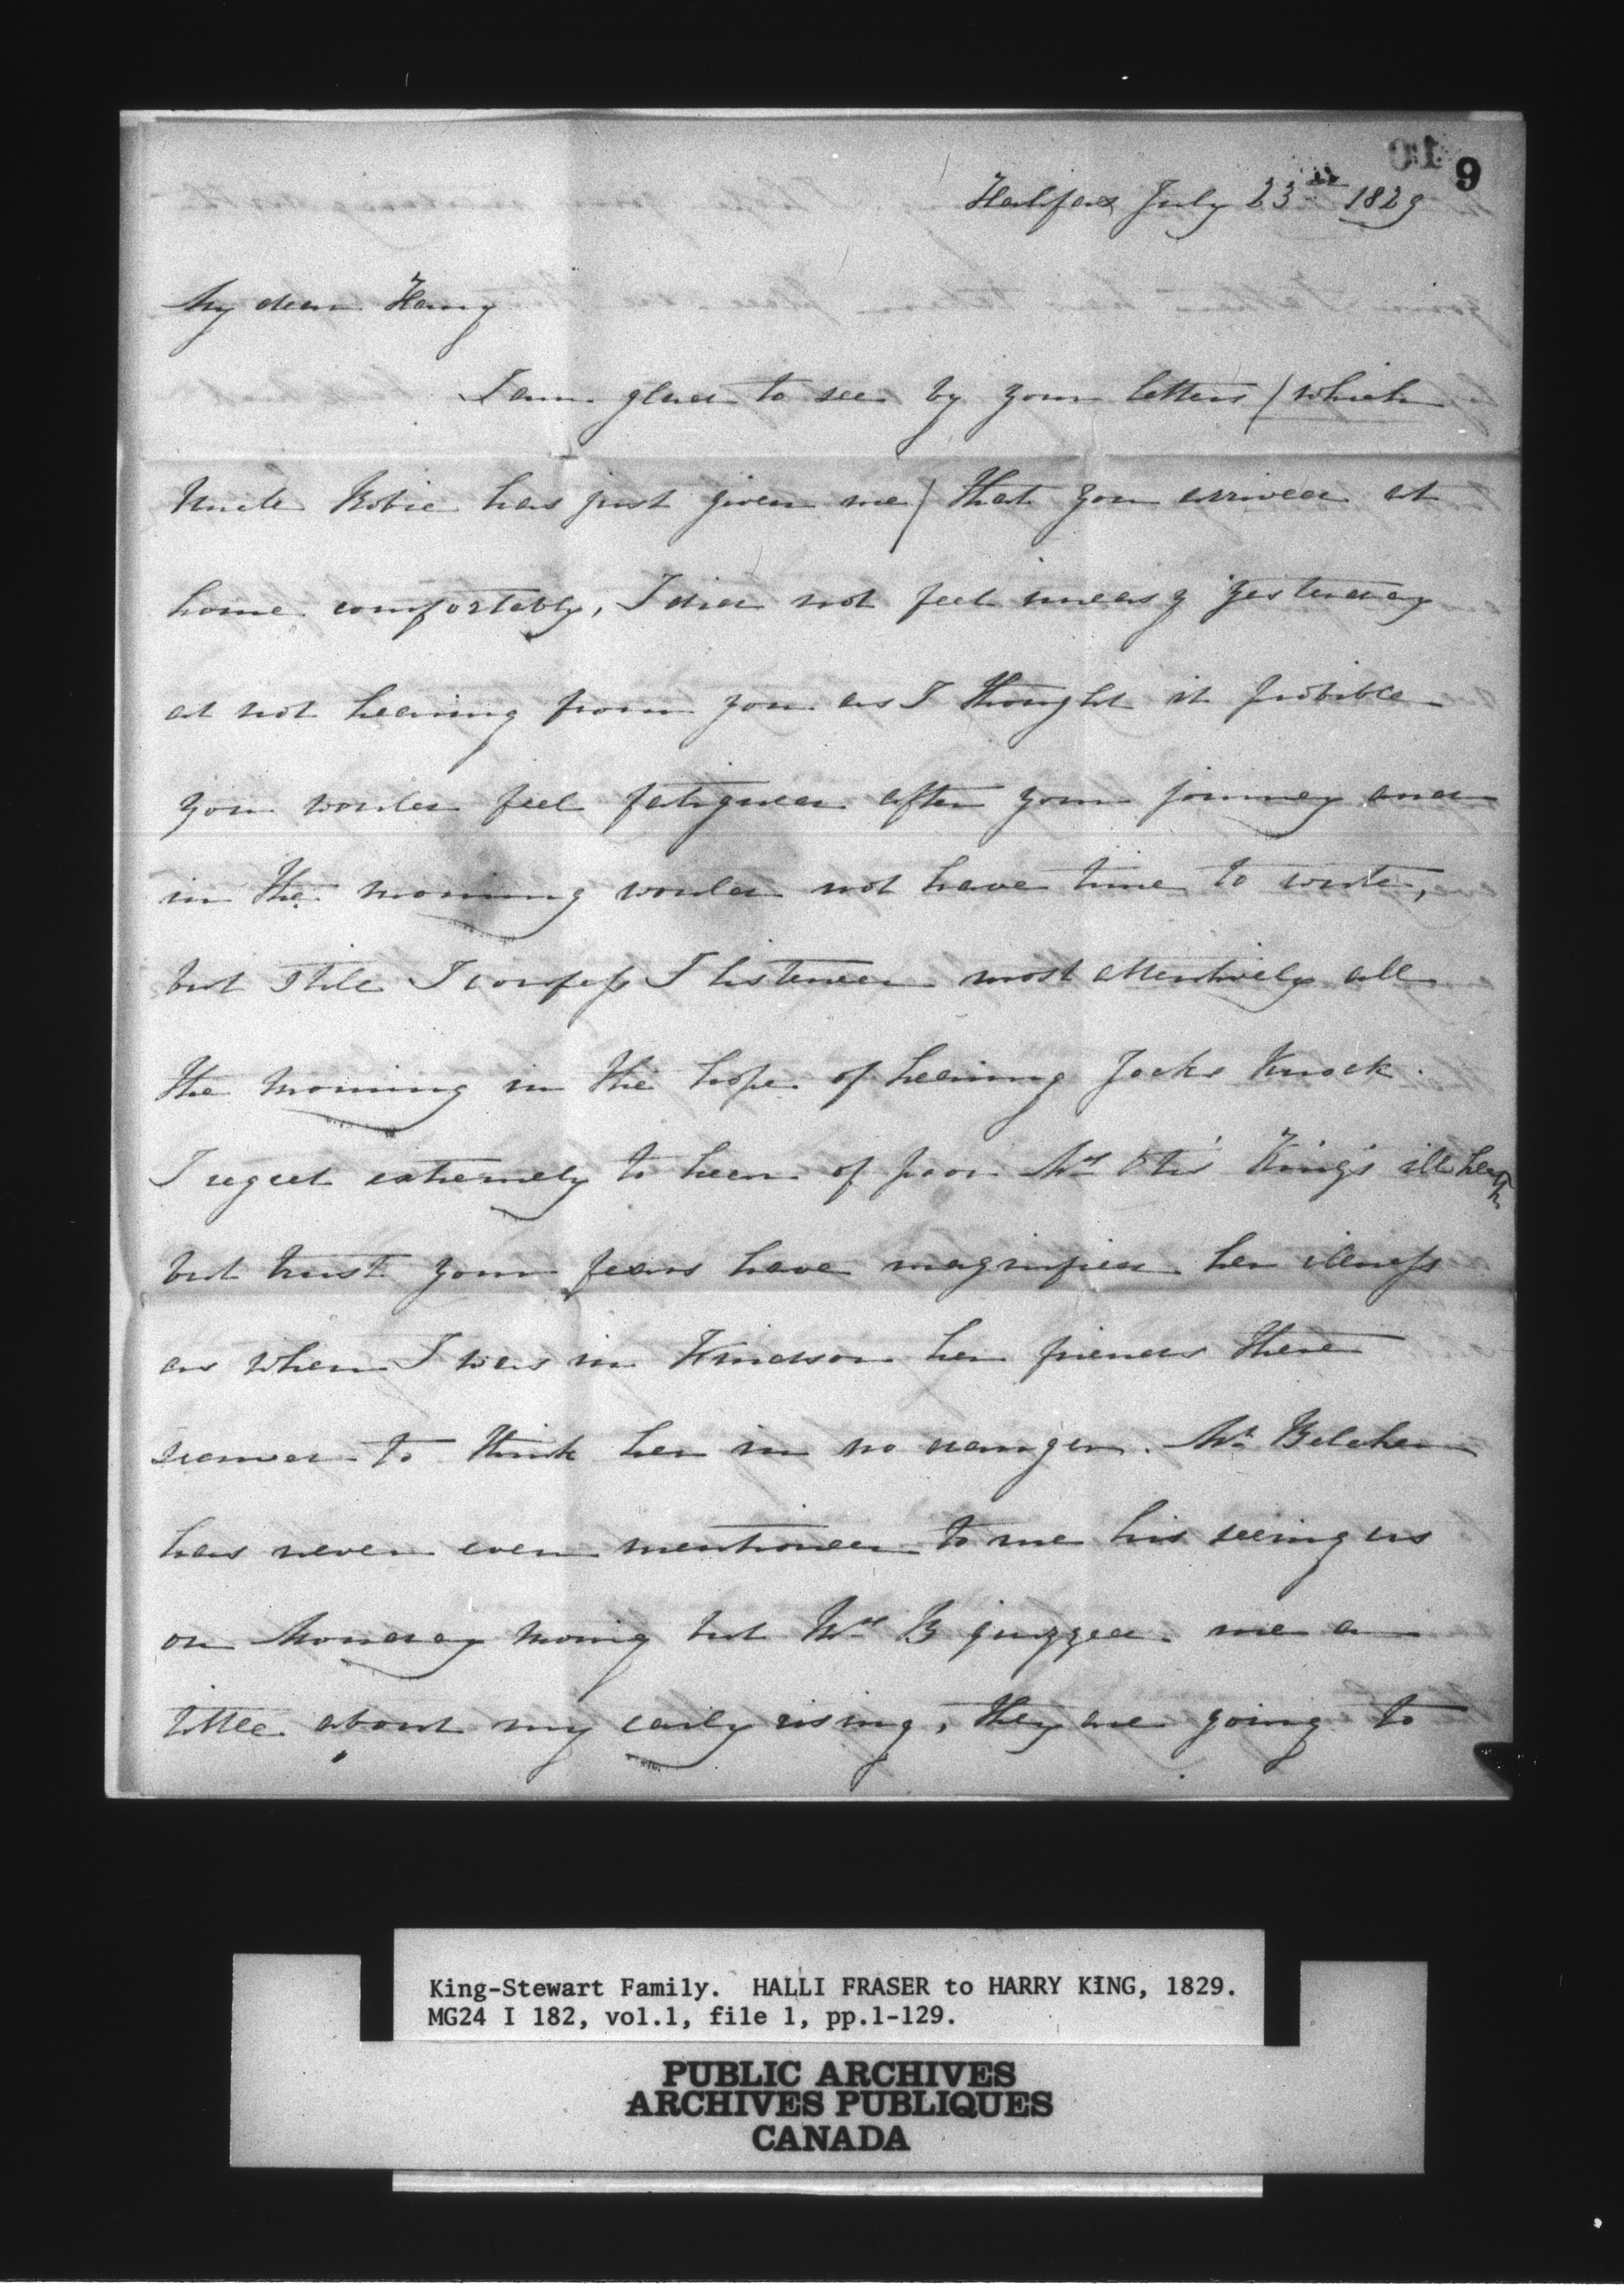 9
Halifax July 23rd 1829
My dear Harry
I am glad to see by your letters (which
Uncle Robie has just given me) that you arrived at
home comfortably, I did not feel uneasy yesterday
at not hearing from you as I thought it probible
you would feel fatigued after your journey and
in the morning would not have time to write,
but still I confess I listened most attentively all
the morning in the hope of hearing Jacks knock.
I regret extremely to hear of poor Mrs Otis King's ill health
but trust your fears have magnified her illness
as when I was in Windsor her friends there
seemed to think her in no danger. Mr Belcher
has never even mentioned to me his seeing us
on Monday morning but Mrs B quizzed me a
little about my early rising, they are going to
King-Stewart Family. HALLI FRASER to HARRY KING, 1829.
MG24 I 182, vol.1, file 1, pp.1-129.
PUBLIC ARCHIVES
ARCHIVES PUBLIQUES
CANADA